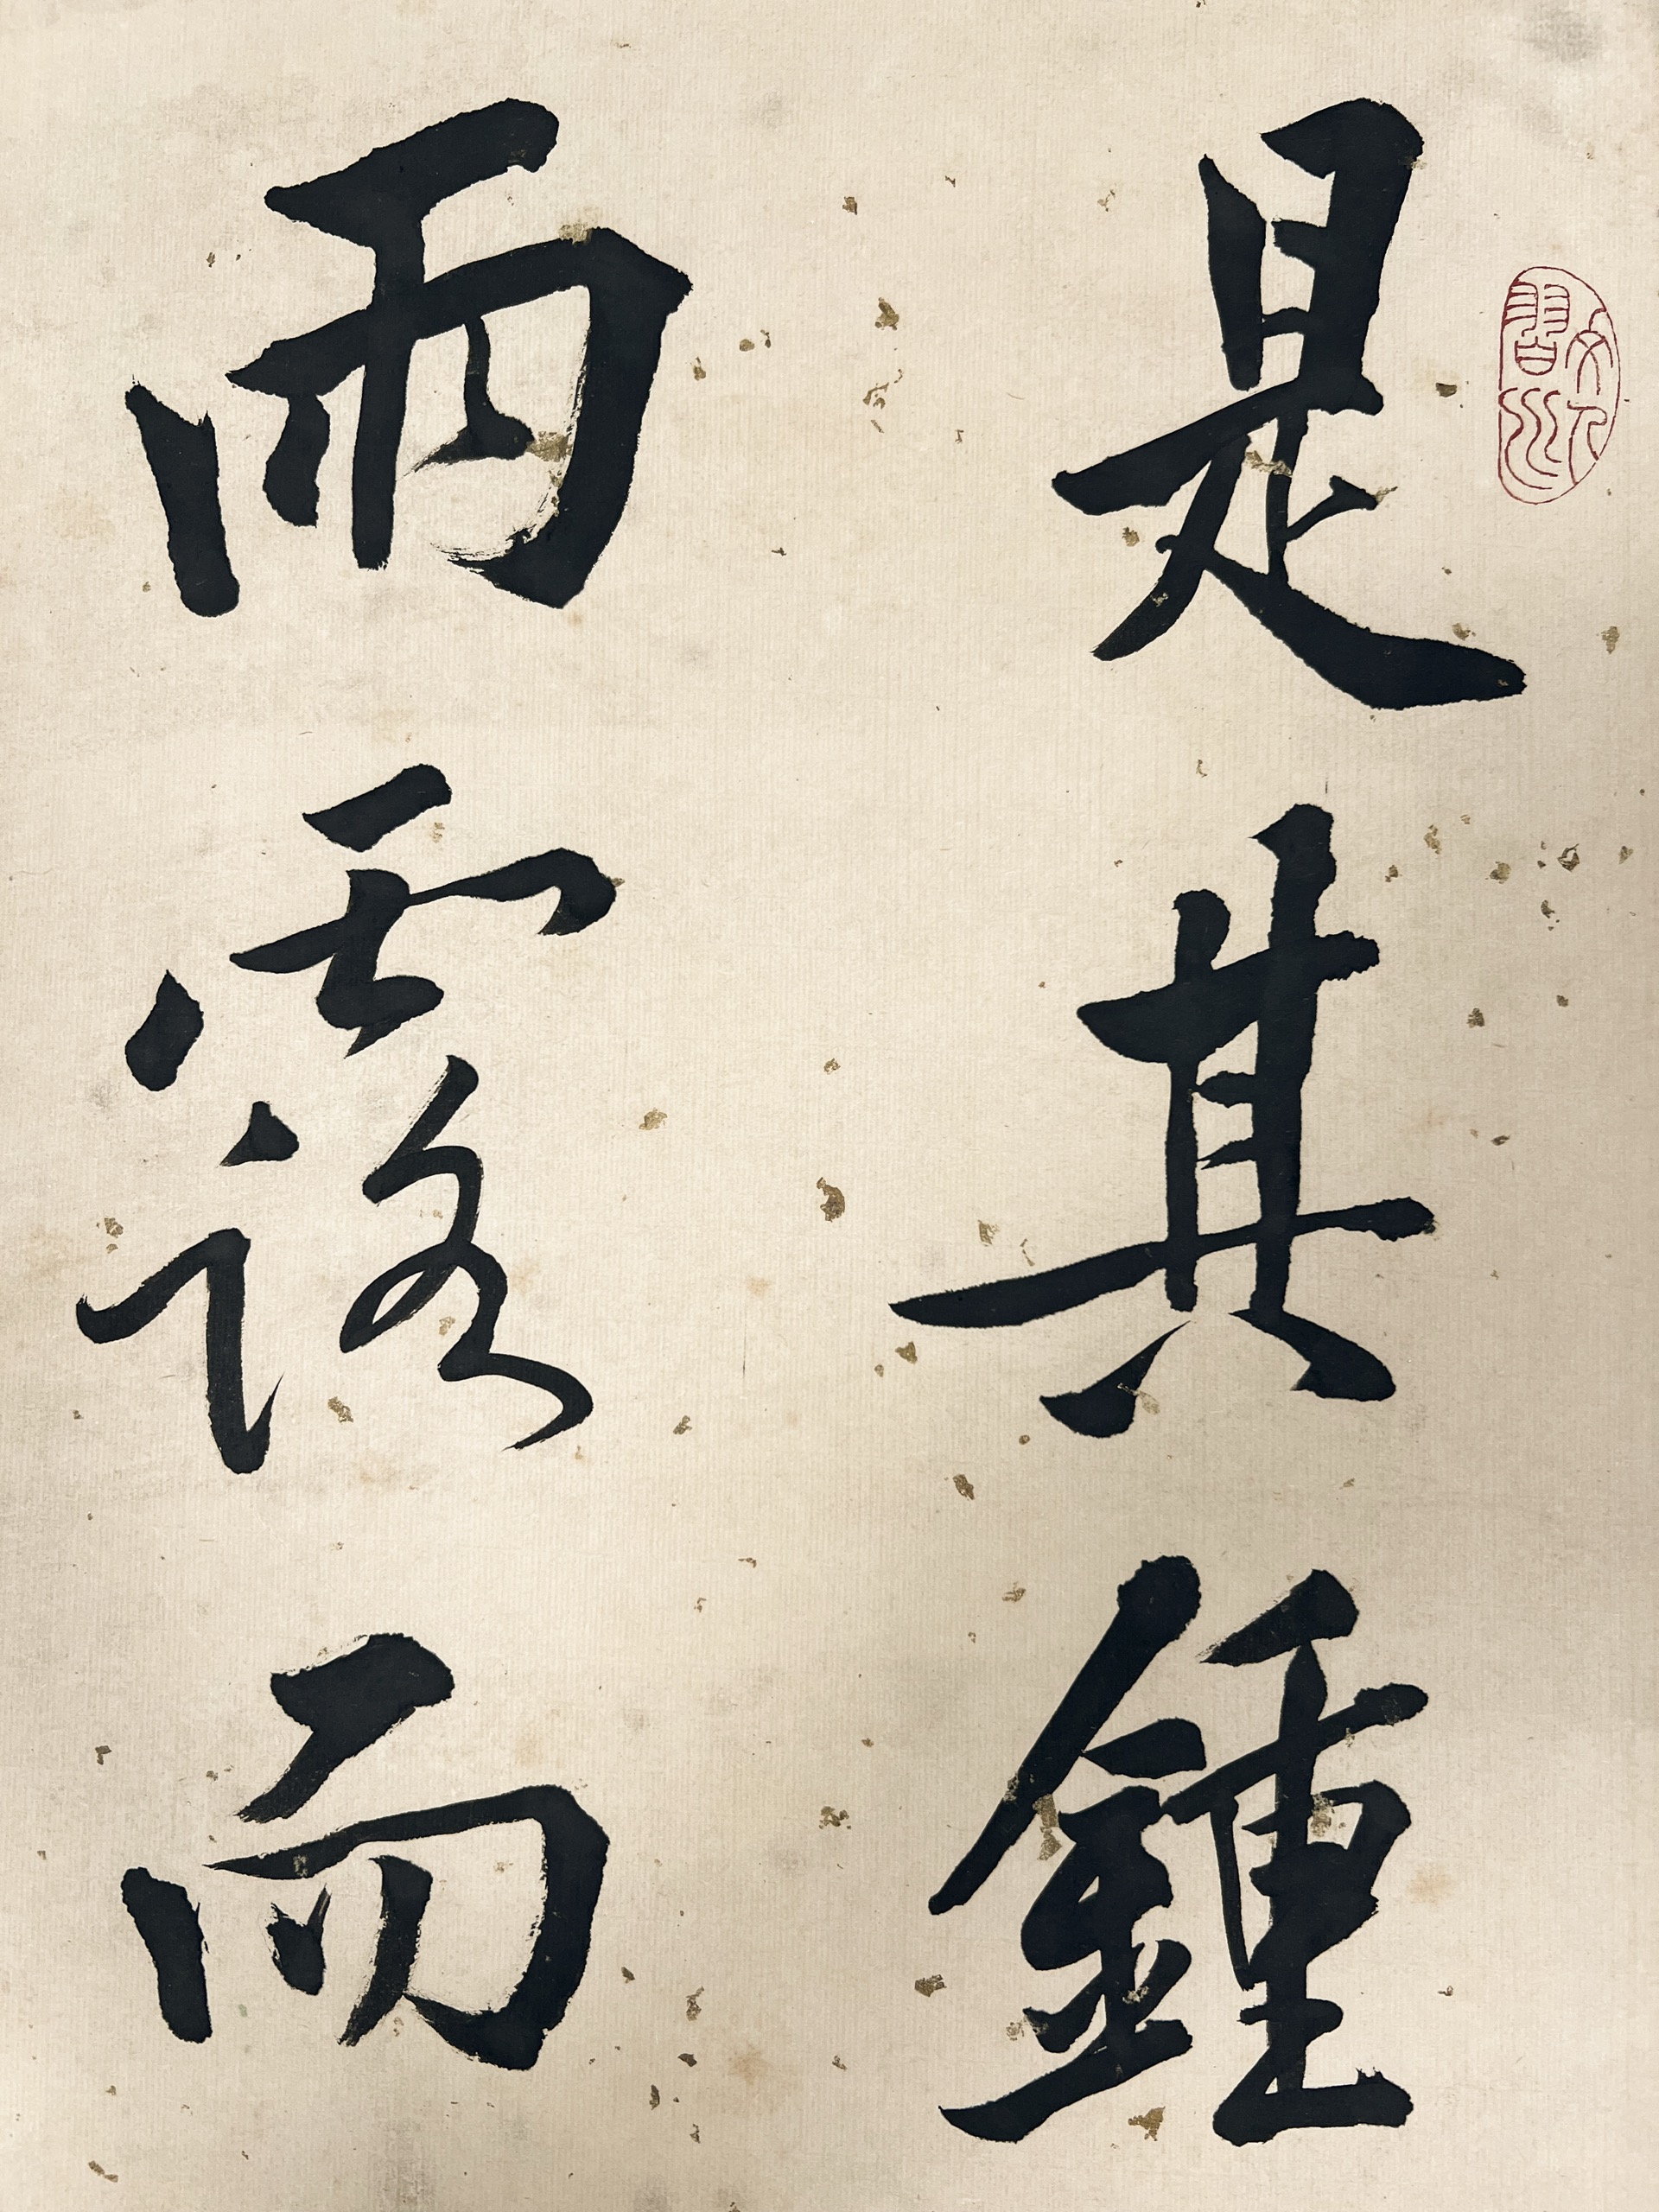 是其鍾
雨露而